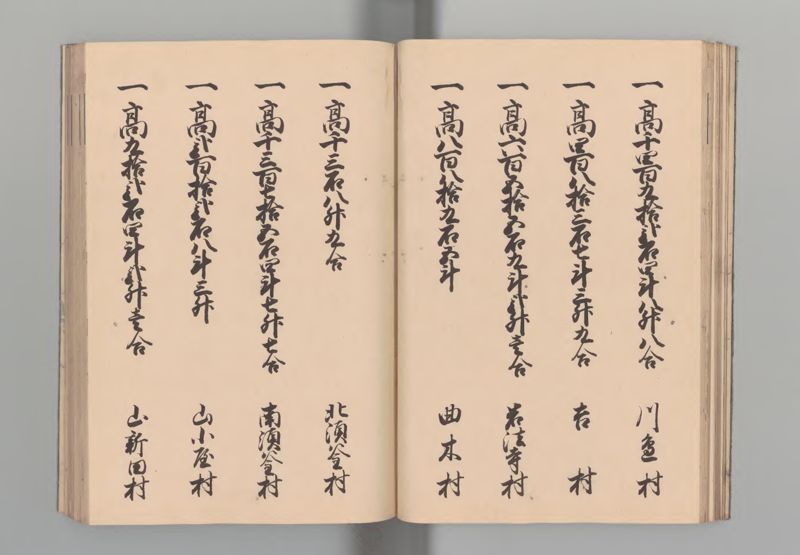 一高千四百九拾弐石四斗八升八合 川邉村
一高四百八拾三石七斗三升九合 吉村
一高六百五拾五石九斗弐升壱合 岩法寺村
一高八百八拾九石五斗 曲木村
一高千三石八升九合 北須釜村
一高千三百七拾五石四斗七升七合 南須釜村
一高弐百拾弐石八斗三升 山小屋村
一高九拾弐石四斗弐升壱合 山新田村